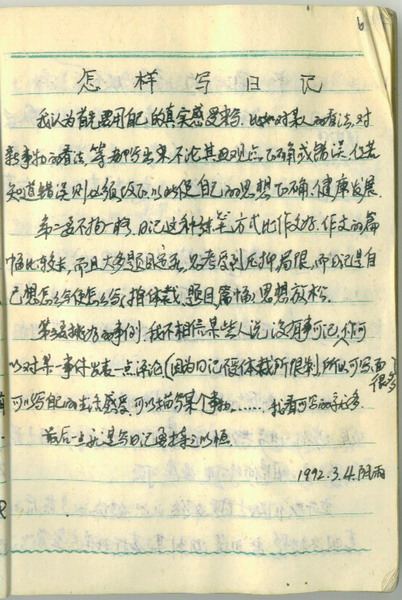 6
怎样写日记
我认为首先要用自己的真实感受来写.比如对某人的看法,对
新事物的看法,等都写出来,不论其观点正确或错误,但若
知道错误则以纠正,以此使自己的思想正确,健康发展.
第二要不拘一格.日记这种练笔方式比作文好.作文的篇
幅比较长,而且大多题目固定,思考受到局限,而日记是自
己想怎么写便怎么写,体裁,题目,篇幅,思想放松.
第三要挑好的事例,我不相信某些人说没有事可记,你可
以对某一事件发表一点评论(因为日记体裁所限制)所以可写面
很多
可以写自己的生活感受,可以描写某个事物……,
最后一点就是写日记要持之以恒.
1992.3.4.阴雨